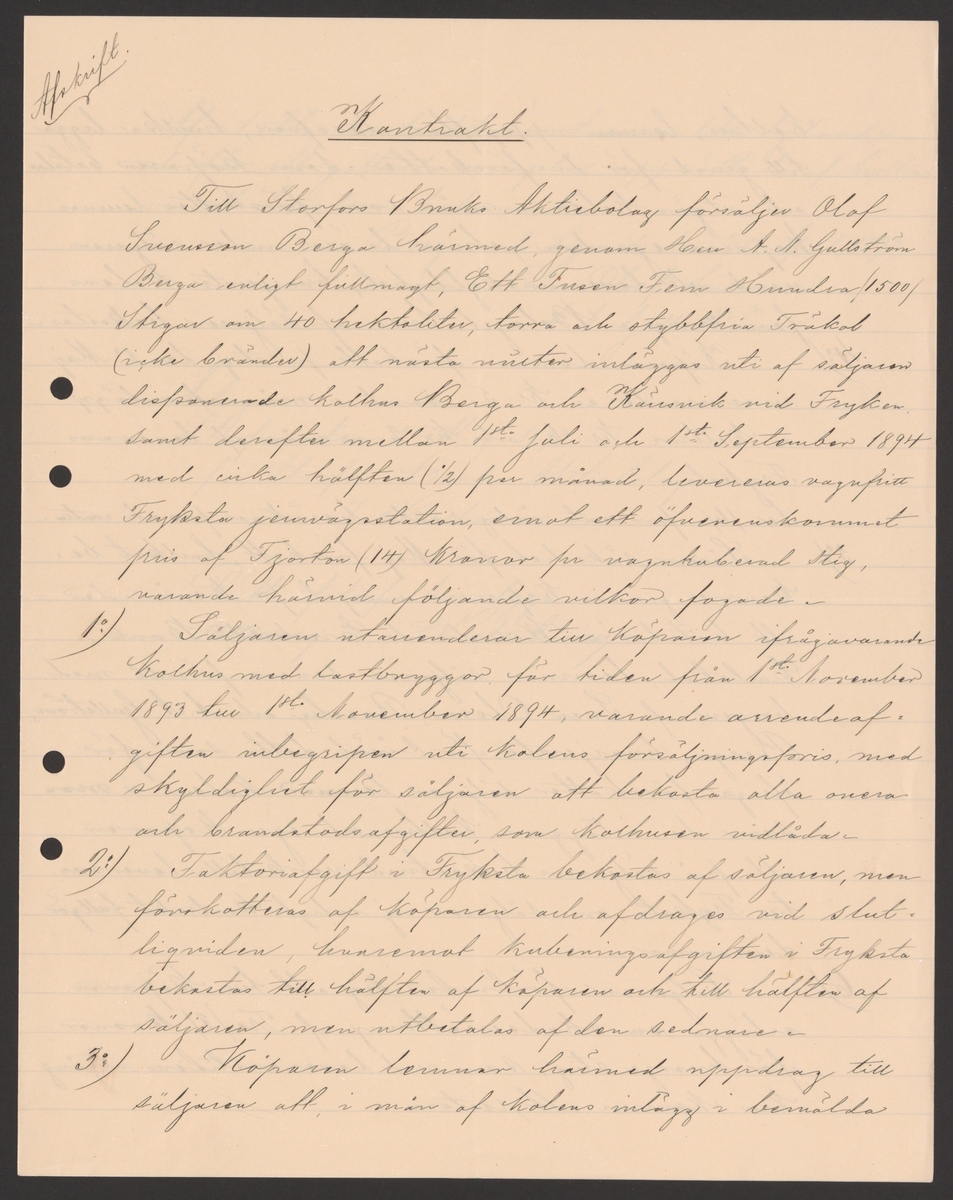 Afskrift.
Kontrakt.
Till Storfors Bruks Aktiebolag försäljer Olof
Svensson Berga härmed, genom Herr A. N. Gullström
Berga enligt fullmagt, Ett Tusen Fem Hundra /1500/
Stigar om 40 hektoliter, torra och stybbfria Träkol
(icke bränder) att nästa vinter inläggas uti af säljaren
disponerade kolhus Berga och Kärsvik vid Fryken
samt derefter mellan 1st. Juli och 1st. September 1894
med cirka hälften (1/2) per månad, levereras vagnfritt
Fryksta jernvägsstation, emot ett öfverenskommet
pris af Fjorton (14) Kronor pr vagnkuberad stig,
varande härvid följande vilkor fogade.
1o) Säljaren utarrenderar till Köparen ifrågavarande
Kolhus med lastbryggor för tiden från 1st. November
1893 till 1st. November 1894, varande arrendeaf-
giften inbegripen uti Kolens försäljningspris, med
skyldighet för säljaren att bekosta alla onera
och brandstodsafgifter, som kolhusen vidlåda.
2o) Faktoriafgift i Fryksta bekostas af säljaren, men
förskotteras af Köparen och afdrages vid slut-
liqviden, hvaremot kuberingsafgiften i Fryksta
bekostas till hälften af Köparen och till hälften af
säljaren, men utbetalas af den sednare.
3o) Köparen lemnar härmed uppdrag till
säljaren att, i mån af Kolens inlägg i bemälda